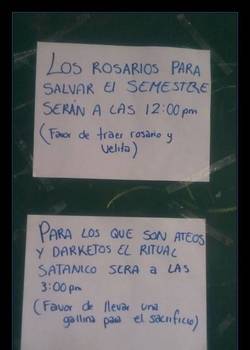 LOS ROSARIOS PARA
SALVAR El SEMESTRE
SERÁN A LAS 12:00 pm
(Favor de traer rosario y
velita)
PARA LOS QUE SON ATEOS
Y DARKETOS EL RITUAL
SATANICO SERA a LAS
3:00 pm
(Favor de llevar una
gallina para el sacrificio)